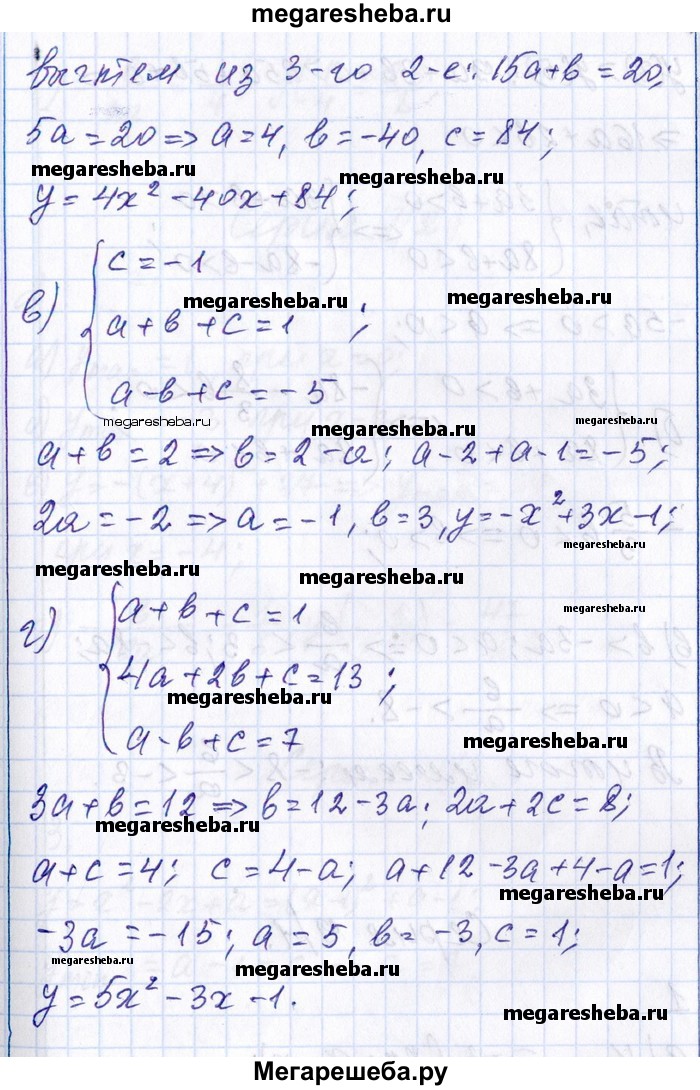 megaresheba.ru
вычтем из 3-го 2-е: 15a+b=20;
5a=20=>a=4, b=-40, c=84;
megaresheba.ru megaresheba.ru
y=4x²-40x+84;
c=-1
megaresheba.ru megaresheba.ru
в) a+b+c=1 ;
a-b+c=-5
megaresheba.ru megaresheba.ru
a+b=2=>b=2-a; a-2+a-1=-5;
2a=-2=>a=-1, b=3, y=-x²+3x-1;
megaresheba.ru
megaresheba.ru megaresheba.ru
a+b+c=1
megaresheba.ru
г) 4a+2b+c=13 ;
megaresheba.ru
a-b+c=7
megaresheba.ru
3a+b=12=>b=12-3a; 2a+2c=8;
megaresheba.ru megaresheba.ru
a+c=4; c=4-a; a+12-3a+4-a=1;
megaresheba.ru
-3a=-15; a=5, b=-3, c=1;
megaresheba.ru megaresheba.ru
y=5x²-3x-1.
megaresheba.ru
Мегарешеба.ру